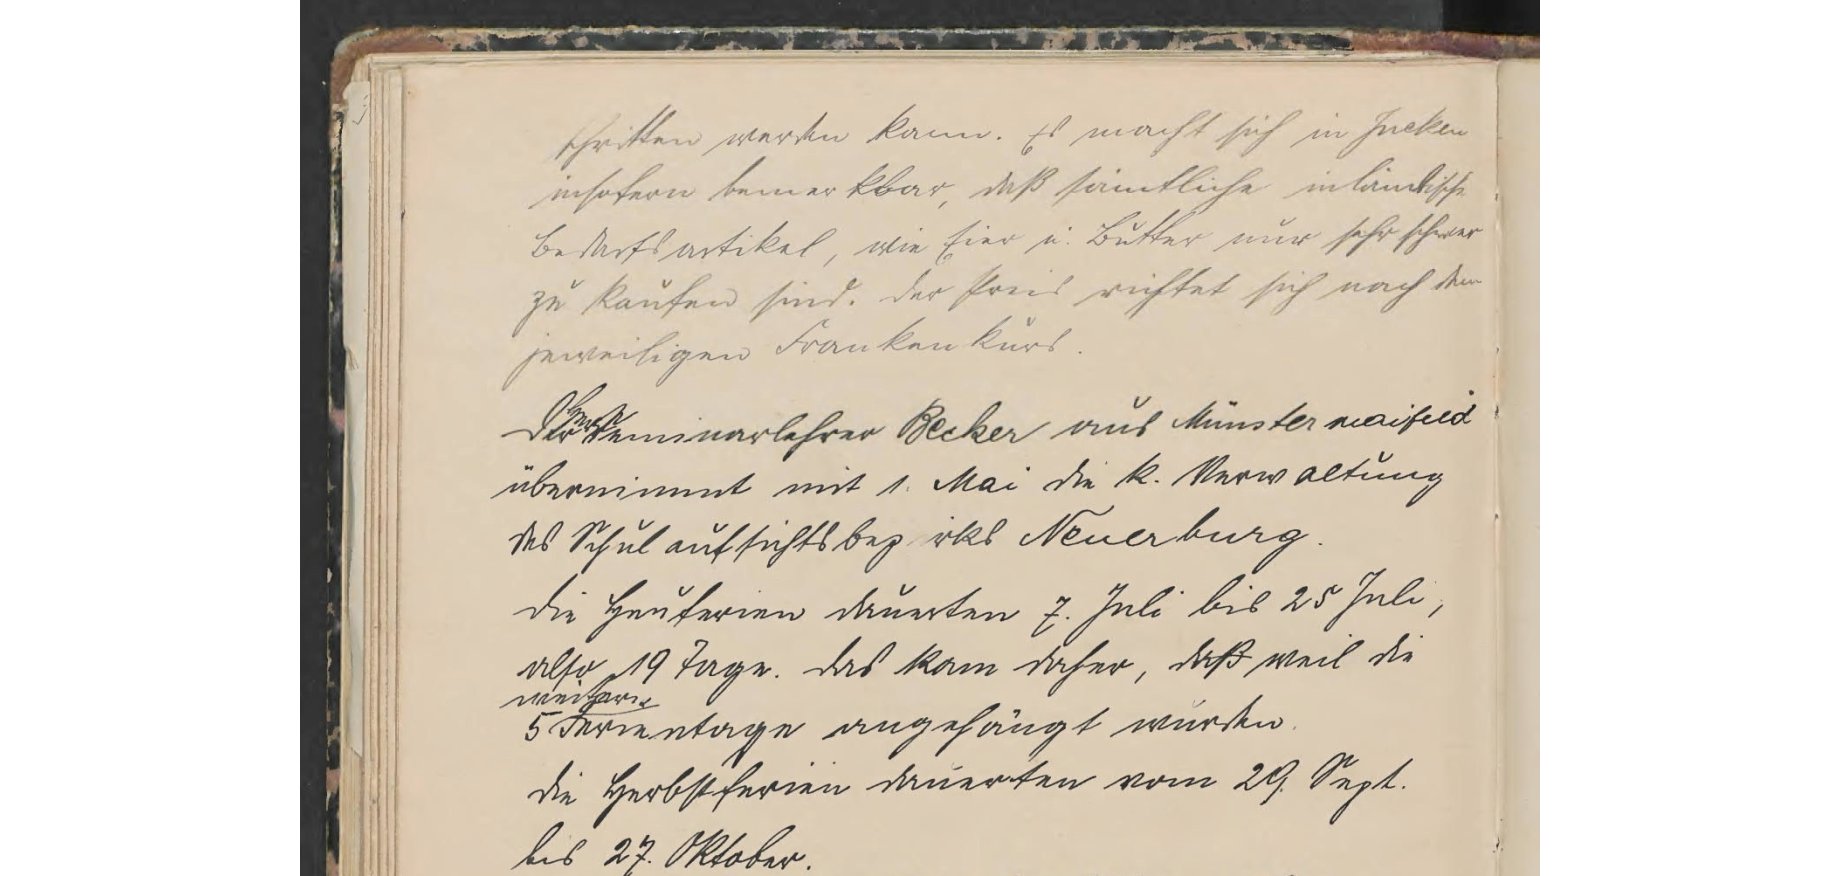 schritten werden kann. Es macht sich in Jucken
insofern bemerkbar, daß sämtliche inländische
Bedarfsartikel, wie Eier u. Butter nur sehr schwer
zu kaufen sind. Der Preis richtet sich nach dem
jeweiligen Frankenkurs.
Der Herr Seminarlehrer Becker aus Münstermaifeld
übernimmt mit 1. Mai die k. Verwaltung
des Schulaufsichtsbezirks Neuerburg.
Die Heuferien dauerten 7. Juli bis 25 Juli,
also 19 Tage. Das kam daher, daß weil die
weitern
5 Ferientage angehängt wurden.
Die Herbstferien dauerten vom 29. Sept.
bis 27. Oktober.